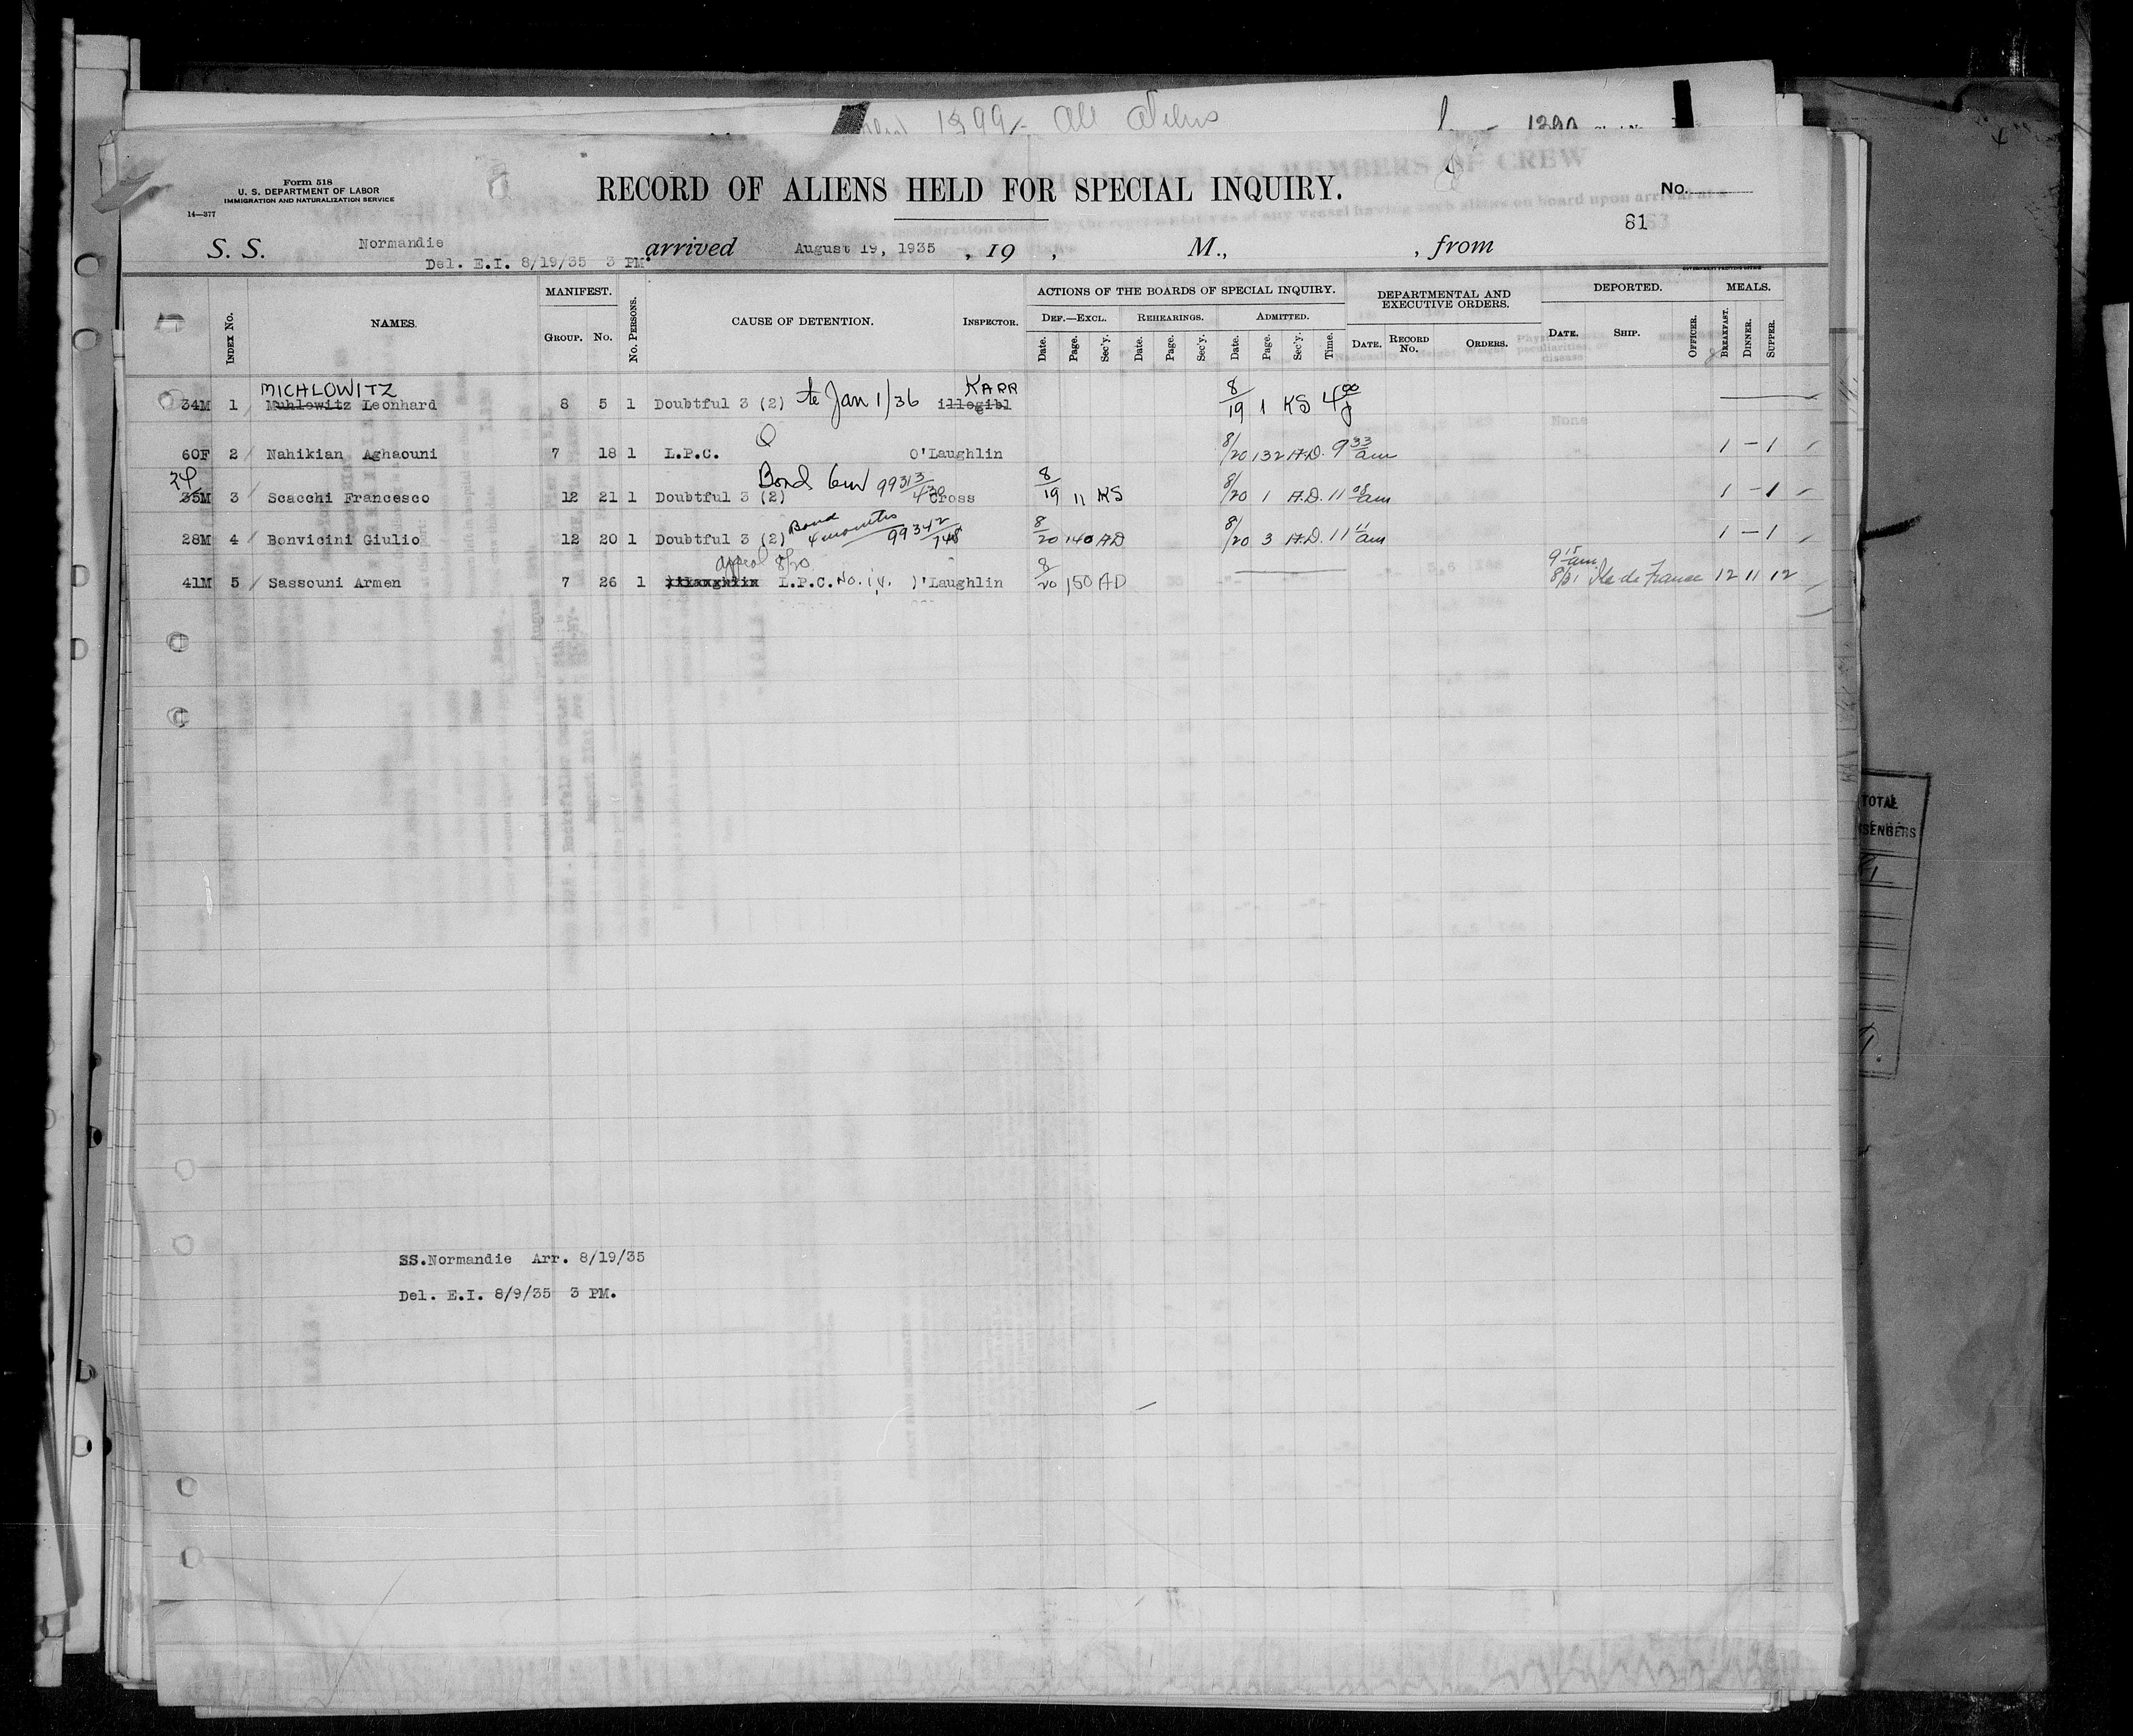 1399 - All Aliens
Form 518
U. S. DEPARTMENT OF LABOR
IMMIGRATION AND NATURALIZATION SERVICE
14—377
RECORD OF ALIENS HELD FOR SPECIAL INQUIRY.
No.
81
S. S. Normandie arrived August 19, 1935 , 19 , M., , from
Del. E.I. 8/19/35 3 PM
INDEX No. NAMES. MANIFEST. GROUP. No. No. PERSONS. CAUSE OF DETENTION. INSPECTOR. ACTIONS OF THE BOARDS OF SPECIAL INQUIRY. DEF.—EXCL. Date. Page. Sec'y. REHEARINGS. Date. Page. Sec'y. ADMITTED. Date. Page. Sec'y. Time. DEPARTMENTAL AND EXECUTIVE ORDERS. DATE. RECORD No. ORDERS. DEPORTED. DATE. SHIP. OFFICER. MEALS. BREAKFAST. DINNER. SUPPER.
MICHLOWITZ KARR
34M 1 Muhlowitz Leonhard 8 5 1 Doubtful 3 (2) to Jan 1/36 illegibl 8/19 1 KS 4 00
60F 2 Nahikian Aghaouni 7 18 1 L.P.C. O'Laughlin 8/20 132 A.D. 9 33 am 1 — 1
24 Bond 6m 99313/430
35M 3 Scacchi Francesco 12 21 1 Doubtful 3 (2) Cross 8/19 11 KS 8/20 1 A.D. 11 am 1 — 1
28M 4 Bonvicini Giulio 12 20 1 Doubtful 3 (2) Bond 4 months 99342/748 8/20 140 AD 8/20 3 A.D. 11 11 am 1 — 1
appeal 8/20 9 15 am
41M 5 Sassouni Armen 7 26 1 L.P.C. No. i.v. O'Laughlin 8/20 150 AD 8/31 Ile de France 12 11 12
SS.Normandie Arr. 8/19/35
Del. E.I. 8/9/35 3 PM.
TOTAL